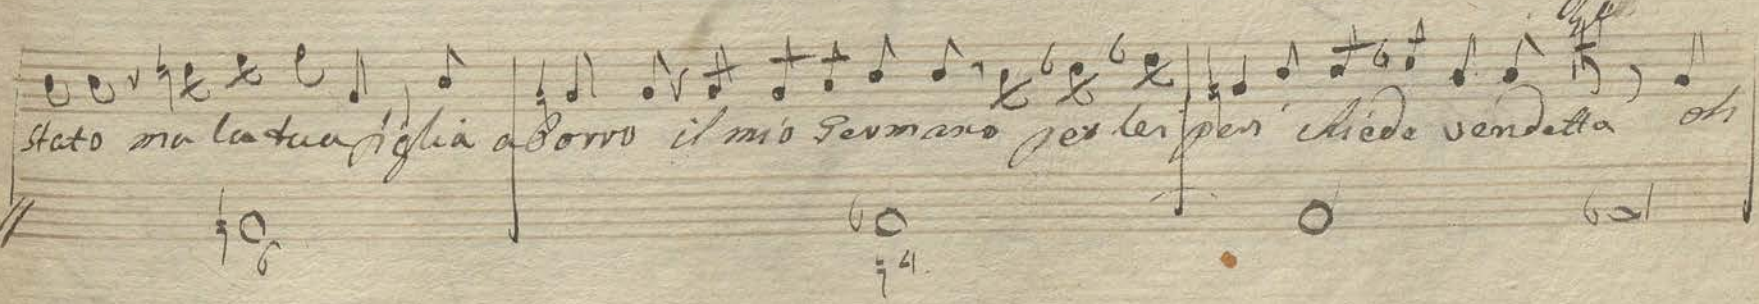 stato ma la tua figlia aborro il mio Germano per lei perì chiede vendetta oh
6
4